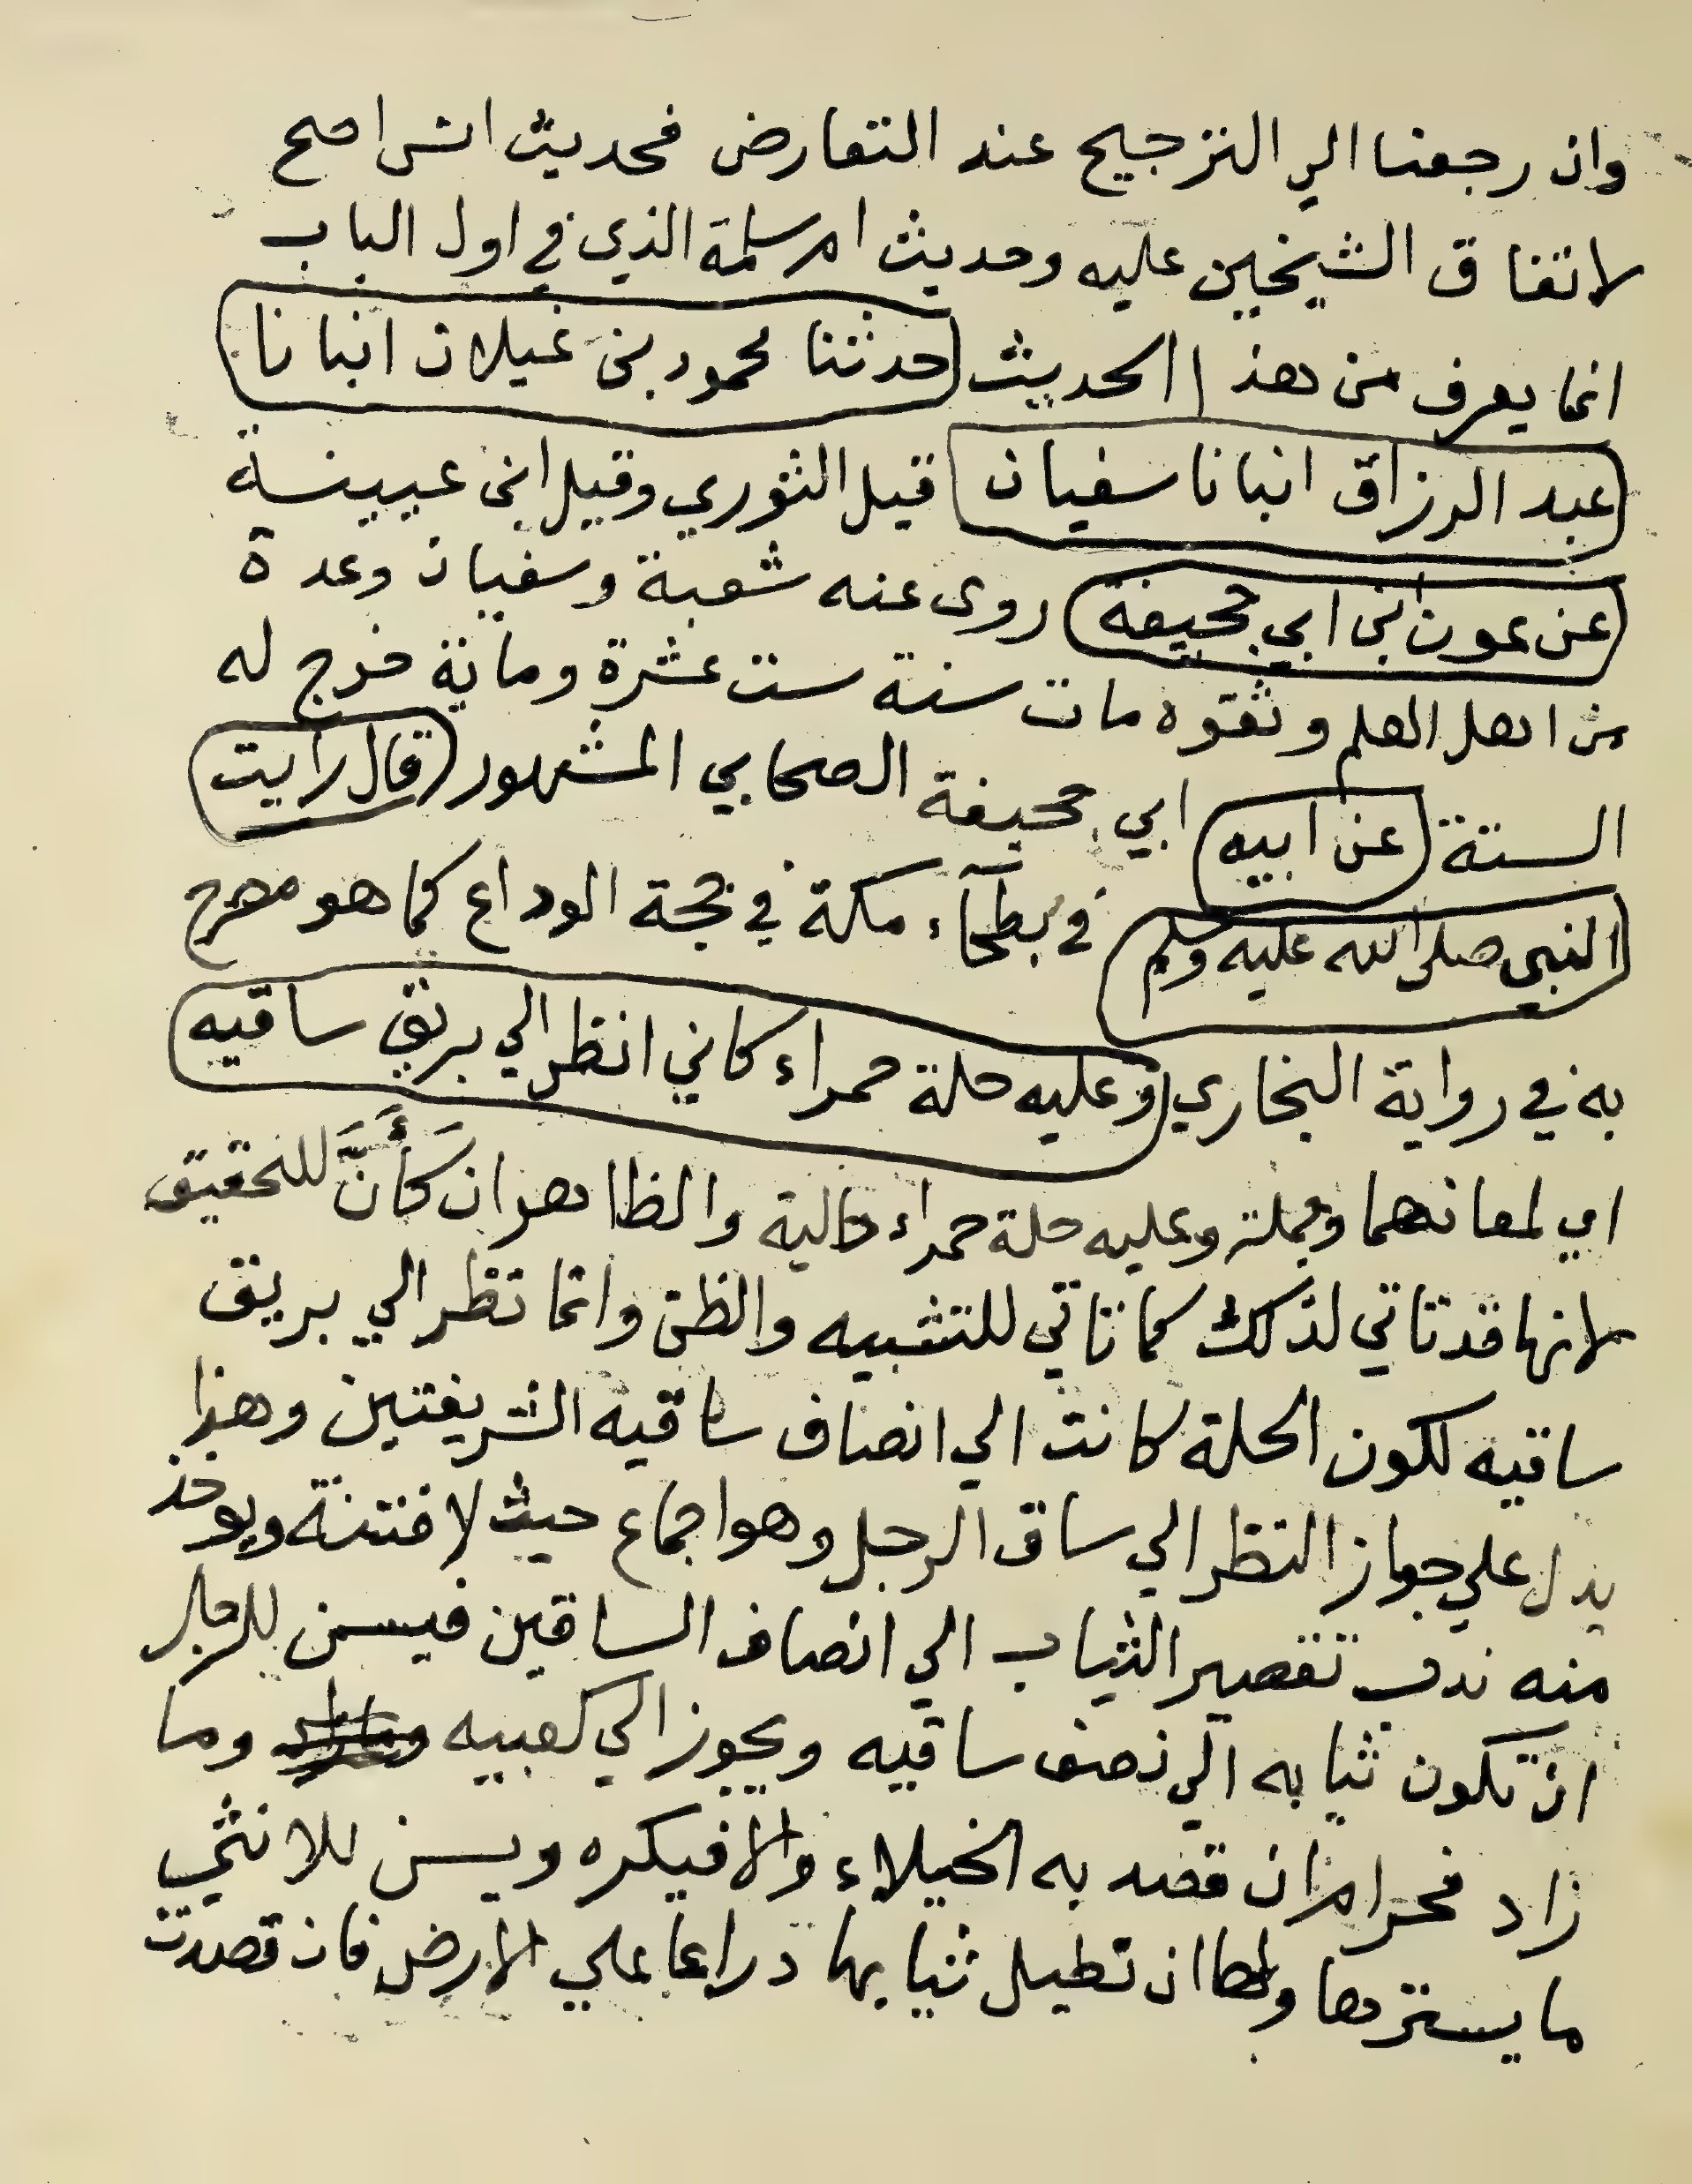 وان رجعنا الي الترجيح عند التعارض فحديث انس اصح
لاتفاق الشيخين عليه وحديث ام سلمة الذي في اول الباب
انما يعرف من هذا الحديث (حدثنا محمود بن غيلان انبانا
عبد الرزاق انبانا سفيان) قيل الثوري وقيل ابن عيينة
(عن عون بن ابي جحيفة) روى عنه شعبة وسفيان وعدة
من اهل العلم وثقوه مات سنة ست عشرة وماية خرج له
الستة (عن ابيه) ابي جحيفة الصحابي المشهور (قال رايت
النبي صلى الله عليه وسلم) في بطحآء مكة في حجة الوداع كما هو مصرح
به في رواية البخاري (وعليه حلة حمراء كاني انظر الي بريق ساقيه)
اي لمعانهما وجملة وعليه حلة حمراء حالية والظاهر ان كَأَنَّ للتحقيق
لانها قد تاتي لذلك كما تاتي للتشبيه والظن وانما نظر الي بريق
ساقيه لكون الحلة كانت الي انصاف ساقيه الشريفتين وهذا
يدل علي جواز النظر الي ساق الرجل وهو اجماع حيث لا فتنة ويوخذ
منه ندب تقصير الثياب الي انصاف الساقين فيسن للرجل
ان تكون ثيابه الي نصف ساقيه ويجوز الي كعبيه وما
زاد فحرام ان قصد به الخيلاء والا فيكره ويسن للانثي
ما يسترها ولها ان تطيل ثيابها دراعا علي الارض فان قصدت